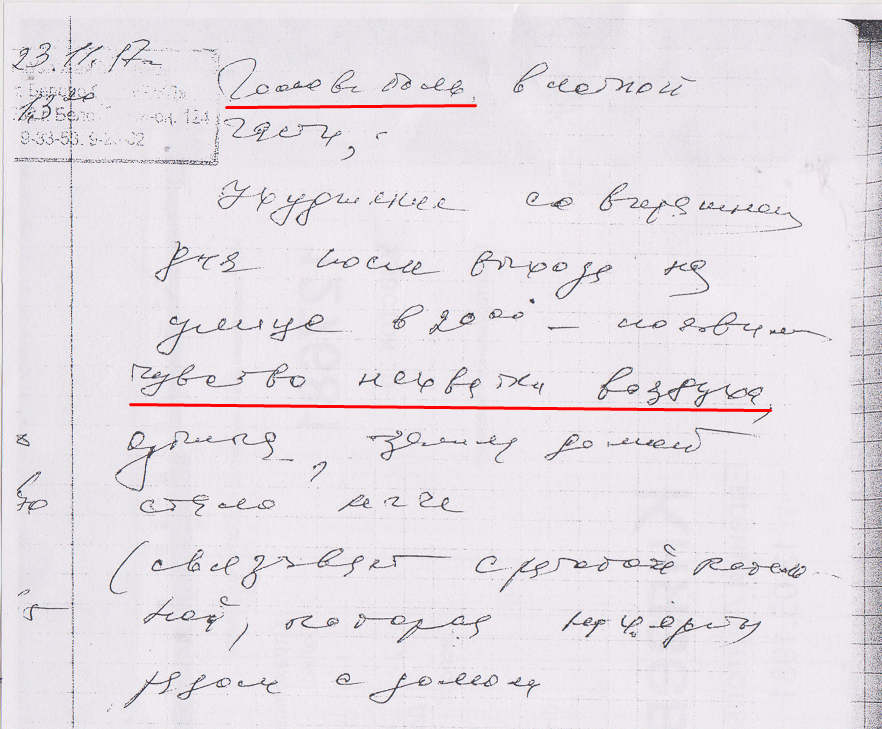 23.11.17г
13 20
124
9-33-53, 9-2 -02
Головн. боль, в лобной
части,
Ухудшение со вчерашнего
дня после выхода на
улицу в 20 00 – появилось
чувство нехватки воздуха,
одышка, зашла домой
стало легче
(связывает с работой котель-
ной, которая находится
рядом с домом